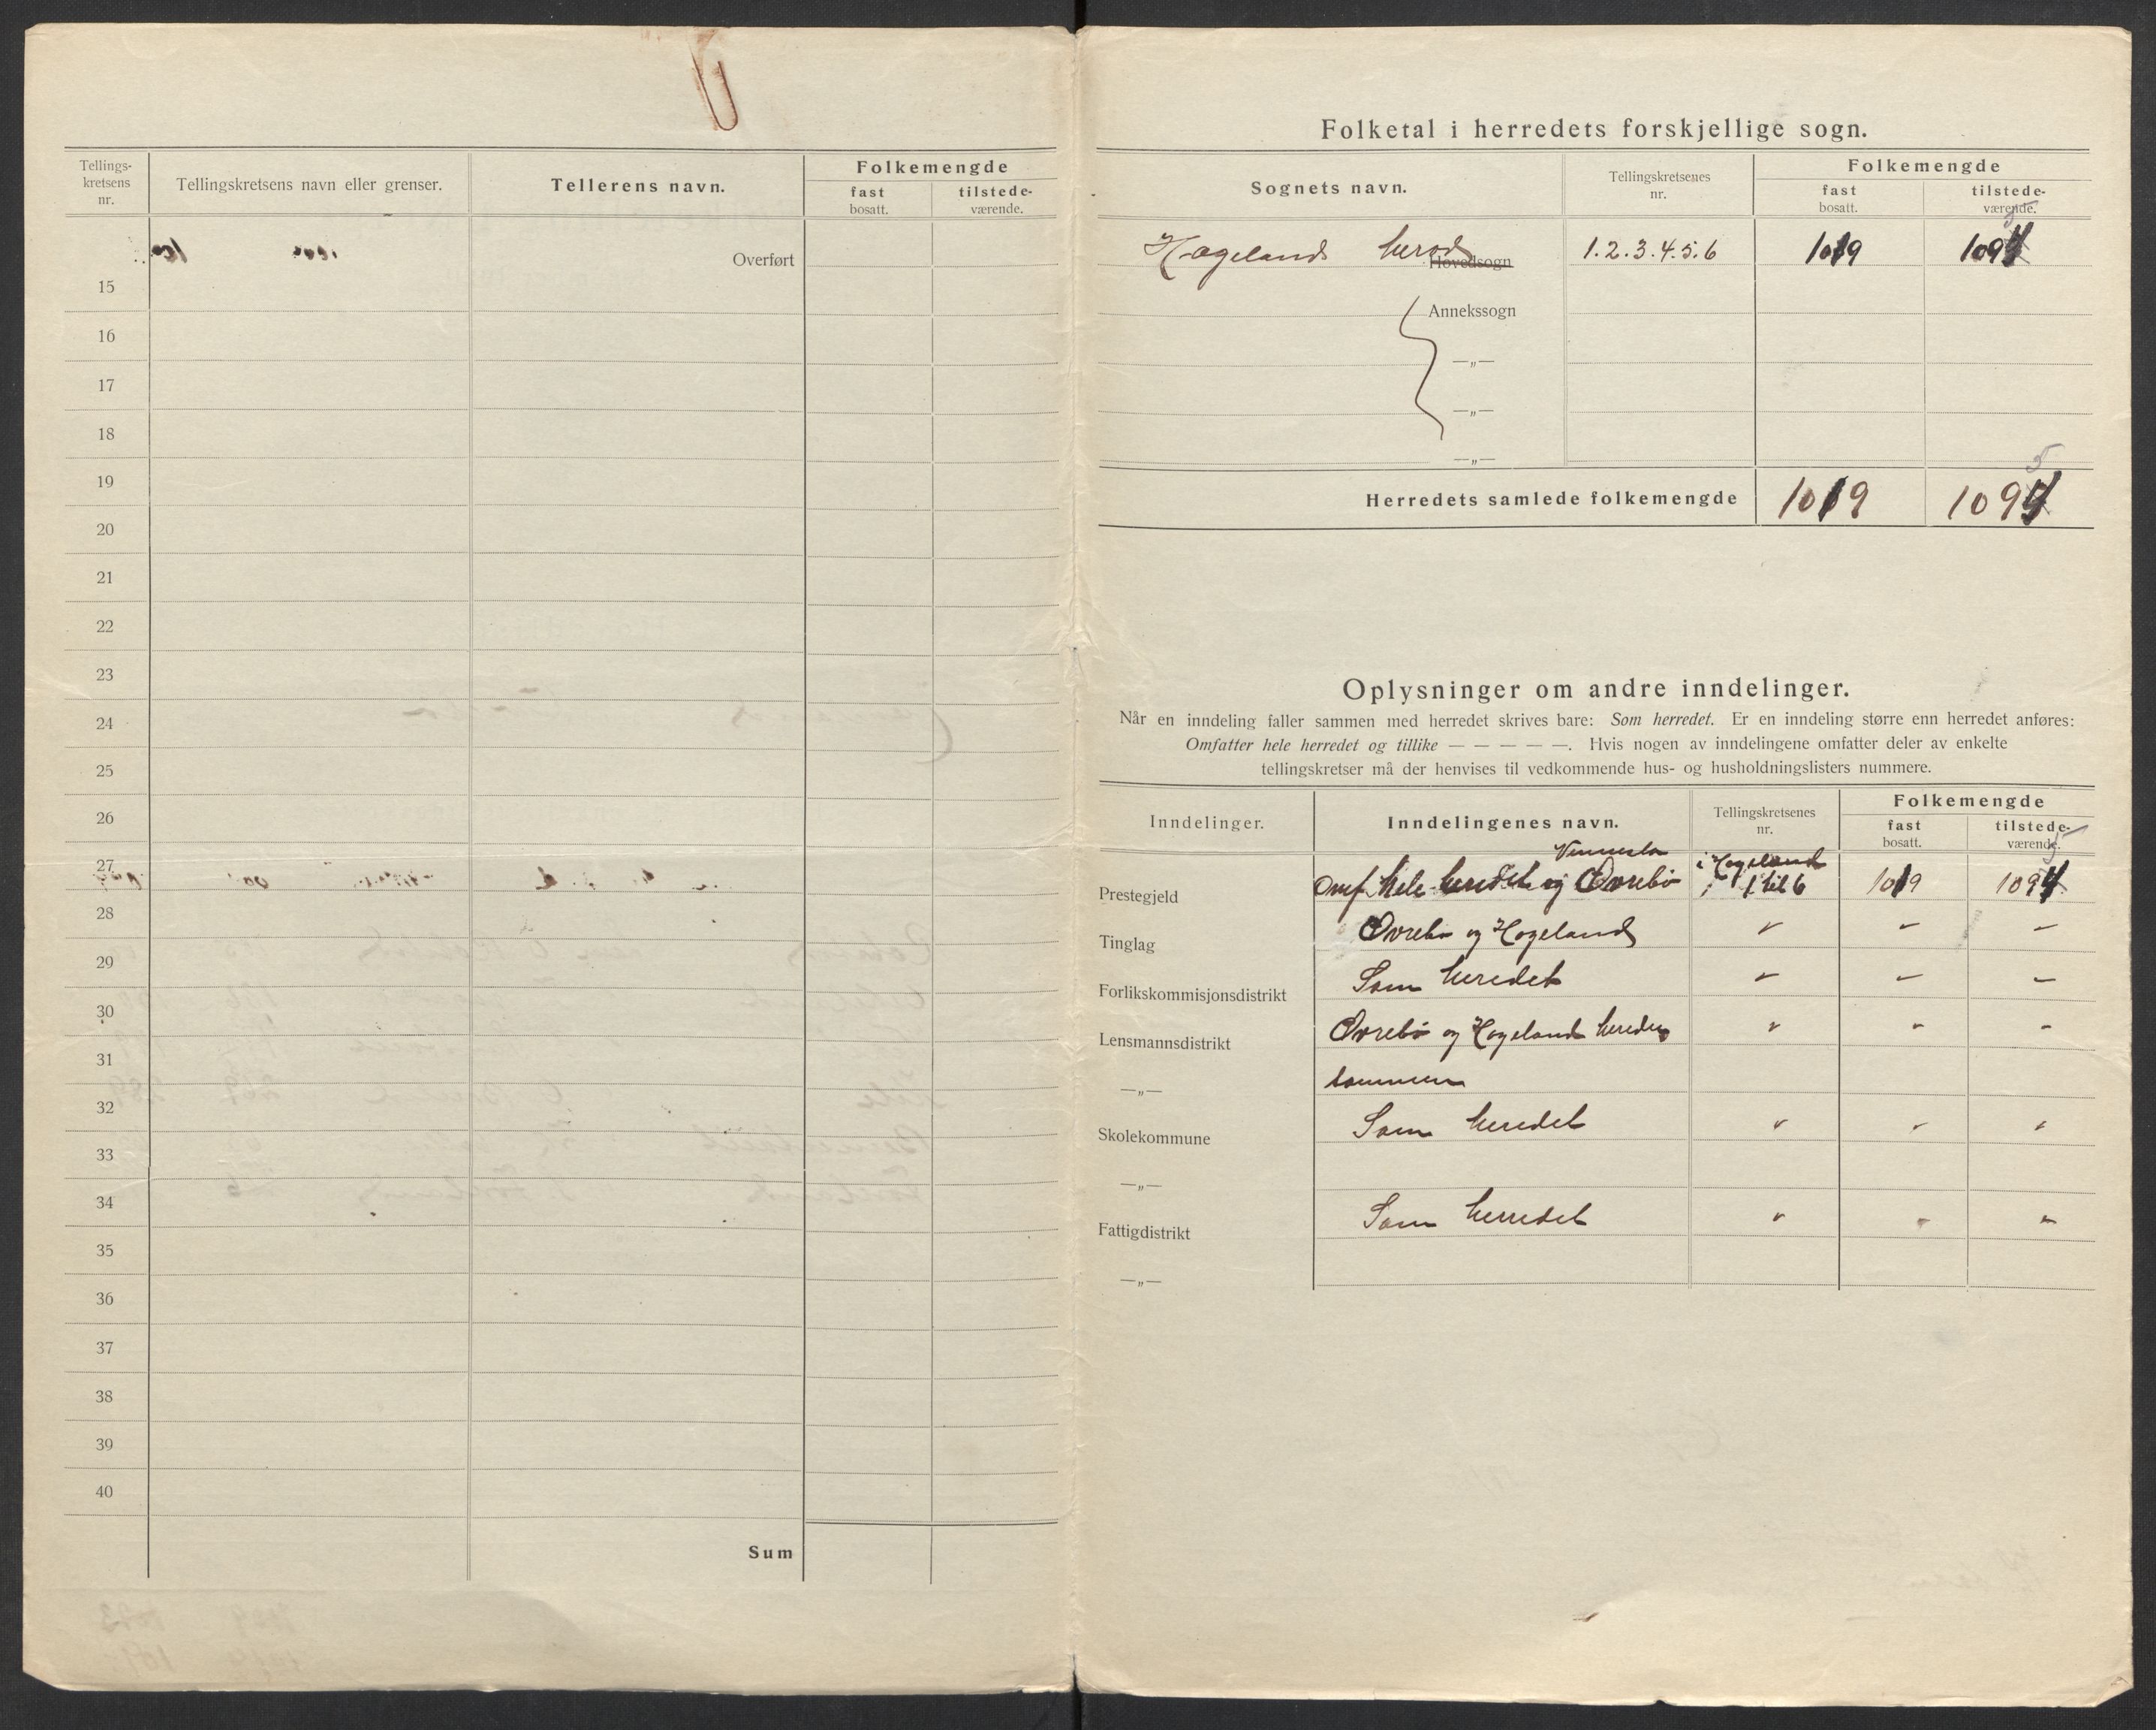 Tellings-
kretsens
nr.
Tellingskretsens navn eller grenser.
Tellerens navn.
Folkemengde
fast
bosatt.
tilstede-
værende.
Overført
15
16
17
18
19
20
21
22
23
24
25
26
27
28
29
30
31
32
33
34
35
36
37
38
39
40
Sum
Folketal i herredets forskjellige sogn.
Sognets navn.
Tellingskretsenes
nr.
Folkemengde
fast
bosatt.
tilstede-
værende.
5
Hægelands herods Hovedsogn 1.2.3.4.5.6 1019 1094
Annekssogn
—„—
—„—
—„—
5
Herredets samlede folkemengde 1019 1094
Oplysninger om andre inndelinger.
Når en inndeling faller sammen med herredet skrives bare: Som herredet. Er en inndeling større enn herredet anføres:
Omfatter hele herredet og tillike — — — — —. Hvis nogen av inndelingene omfatter deler av enkelte
tellingskretser må der henvises til vedkommende hus- og husholdningslisters nummere.
Inndelinger.
Inndelingenes navn.
Tellingskretsenes
nr.
Folkemengde
fast
bosatt.
tilstede-
værende.
Vennesla i Hægeland 5
Prestegjeld Omf. hele herredet og Øvrebø 1 til 6 1019 1094
Tinglag Øvrebø og Hægeland " — —
Forlikskommisjonsdistrikt Som heredet " — —
Lensmannsdistrikt Øvrebø og Hægeland hereder " - -
—„— sammen
Skolekommune Som heredet " " "
—„—
Fattigdistrikt Som herredet " " "
—„—